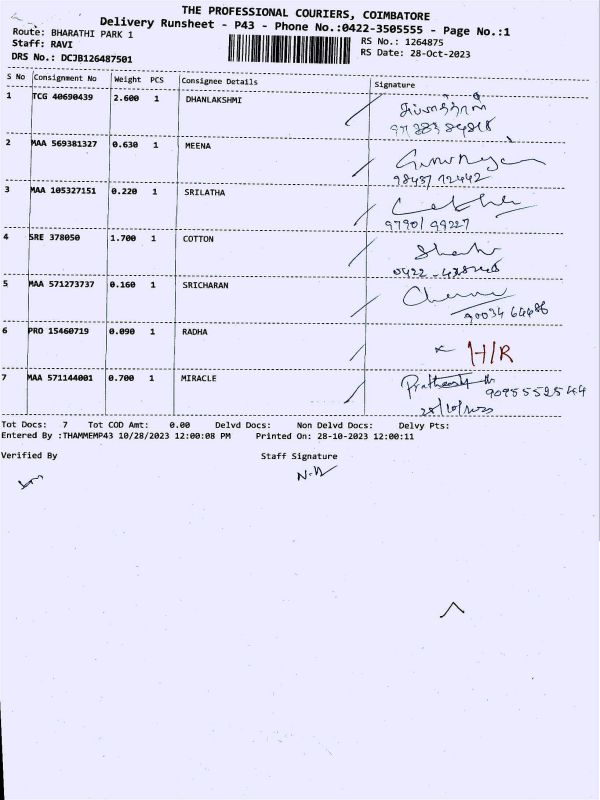 THE PROFESSIONAL COURIERS, COIMBATORE
Delivery Runsheet - P43 - Phone No.:0422-3505555 - Page No.:1
Route: BHARATHI PARK 1
Staff: RAVI
DRS No.: DCJB126487501
RS No.: 1264875
RS Date: 28-Oct-2023
S No Consignment No Weight PCS Consignee Details Signature
1 TCG 40690439 2.600 1 DHANLAKSHMI
2 MAA 569381327 0.630 1 MEENA
3 MAA 105327151 0.220 1 SRILATHA
97901 99227
4 SRE 378050 1.700 1 COTTON
5 MAA 571273737 0.160 1 SRICHARAN
90034 64686
6 PRO 15460719 0.090 1 RADHA
H/R
7 MAA 571144001 0.700 1 MIRACLE
Tot Docs: 7 Tot COD Amt: 0.00 Delvd Docs: Non Delvd Docs: Delvy Pts:
Entered By :THAMMEMP43 10/28/2023 12:00:08 PM Printed On: 28-10-2023 12:00:11
Verified By Staff Signature